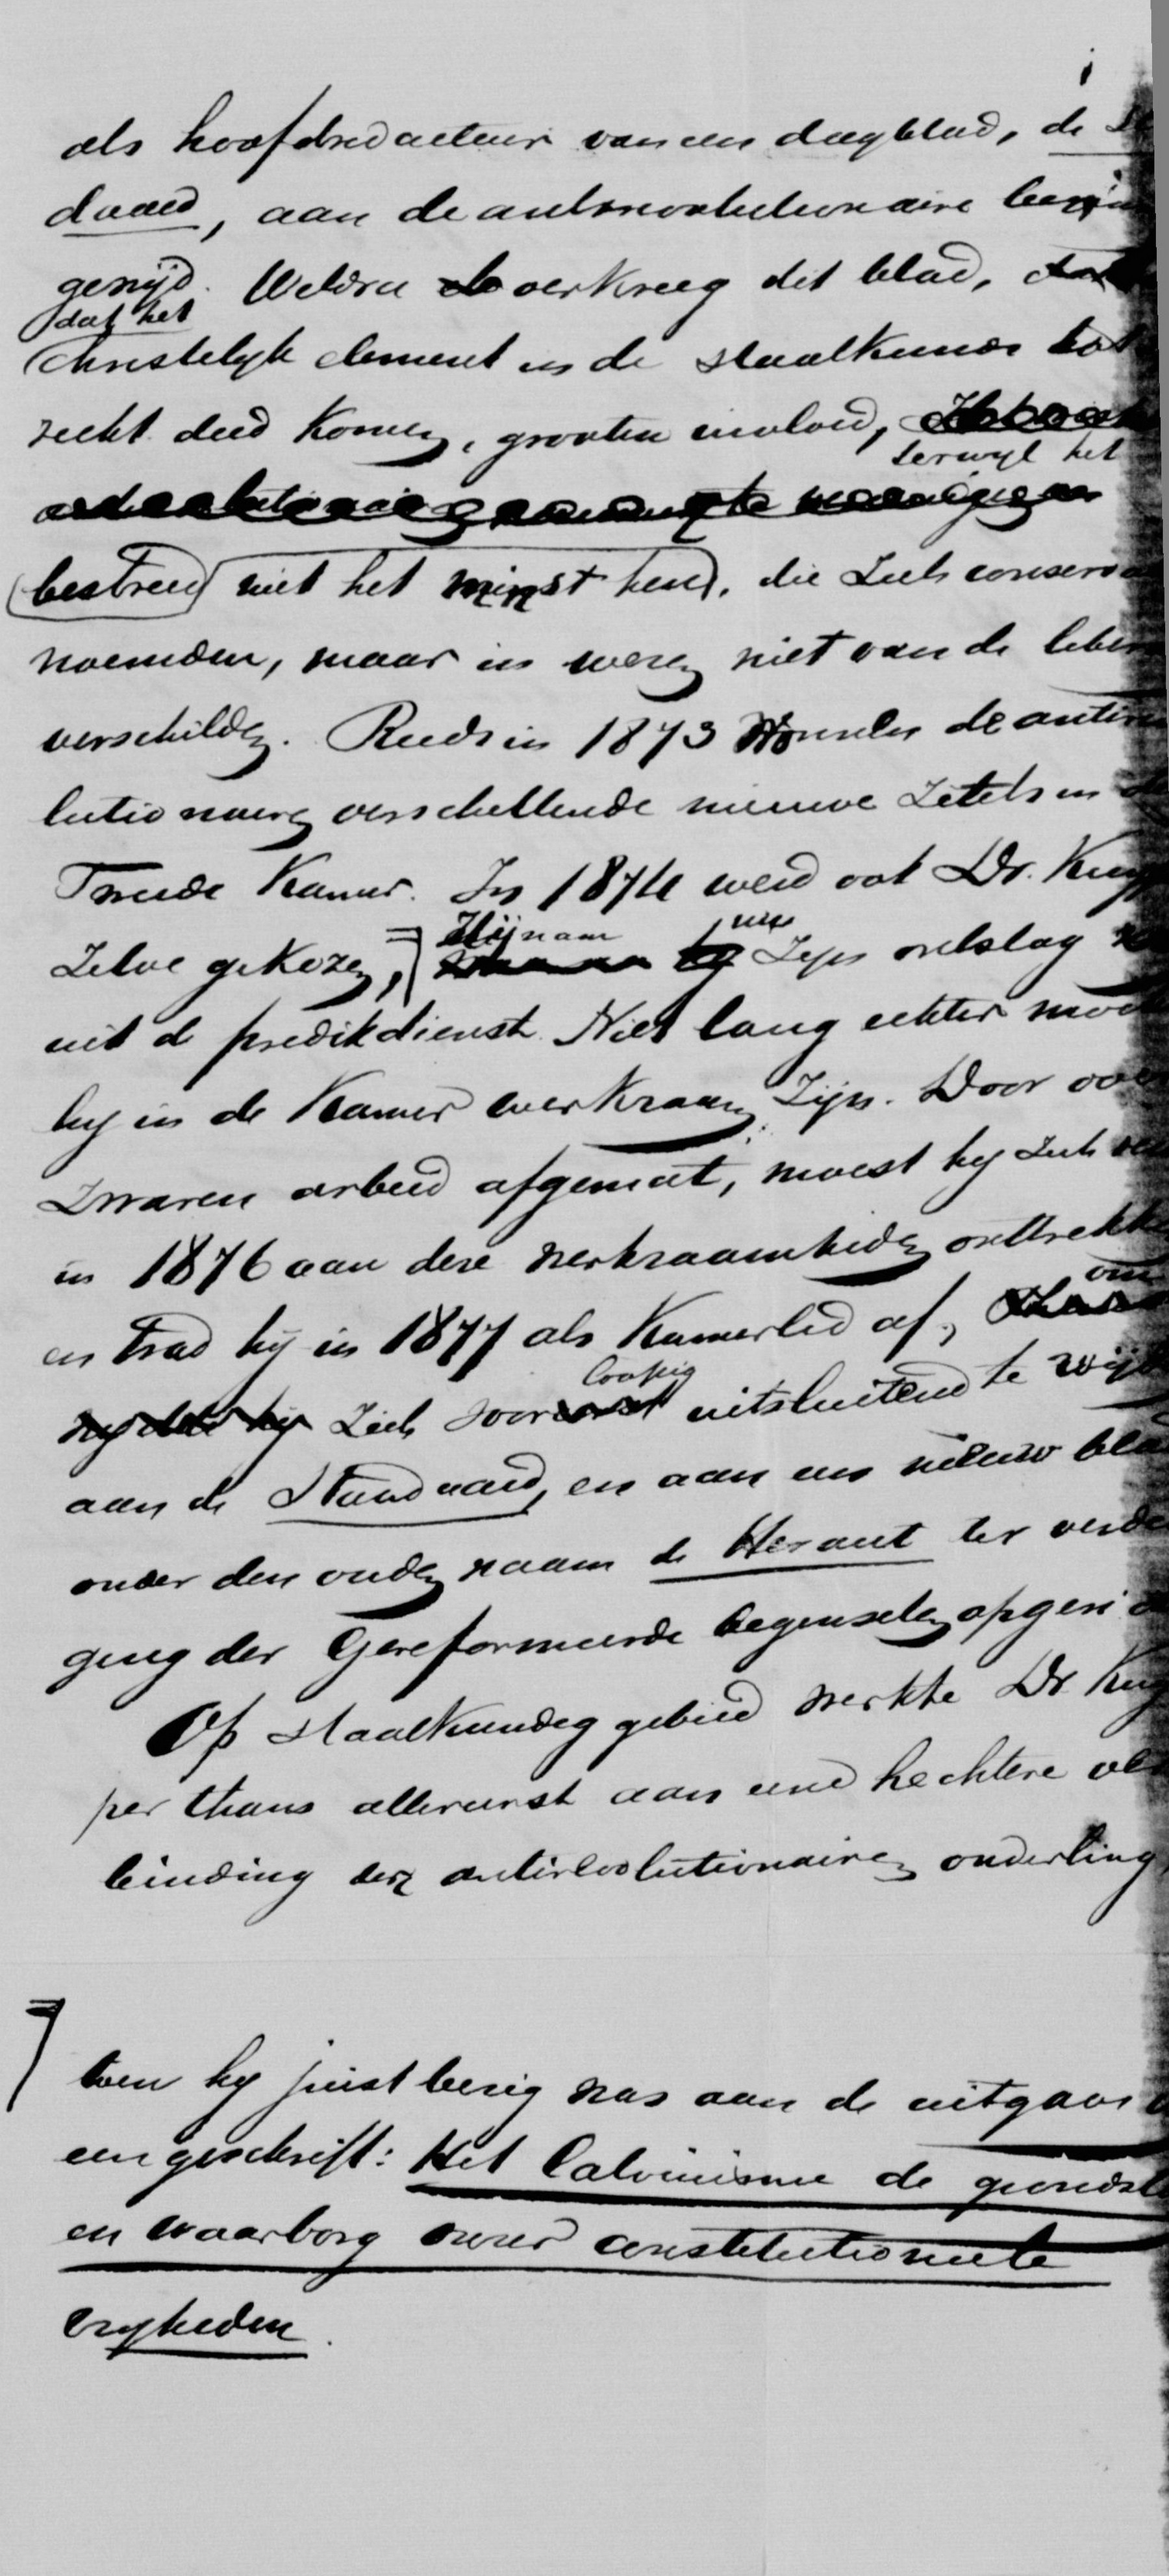 als hoofdredacteur van een dagblad, de
daard, aan de antirevolutionaire begin
gewijd. Weldra verkreeg dit blad,
dat het
Christelijk element in de staatkunde tot
recht deed komen, grooten invloed,
terwyl het
bestreed niet het minst hen, die zich conserva
noemden, maar in wezen niet van de libera
verschilden. Reeds in 1873 wonnen de antirevo
lutionairen verschillende nieuwe zetels in de
Tweede Kamer. In 1874 werd ook Dr. Kuy
zelve gekozen, Hij nam nu zijn ontslag
uit de predikdienst. Niet lang echter moch
hy in de Kamer werkzaam zijn. Door
zwaren arbeid afgemat, moest hy zich
in 1876 aan deze werkzaamheden onttrekke
en trad hij in 1877 als Kamerlid af, om
zich voorloopig uitsluitend te wijd
aan de Standaard, en aan een nieuw blad
onder den ouden naam de Heraut ter verde
ging der Gereformeerde beginselen opgeri
Op staatkundig gebied werkte Dr. Kuy
per thans allereerst aan eene hechtere ver
binding der antirevolutionairen onderling
toen hy juist bezig was aan de uitgave
een geschrift: Het Calvinisme de grondsl
en waarborg onzer constitutioneele
vryheden.